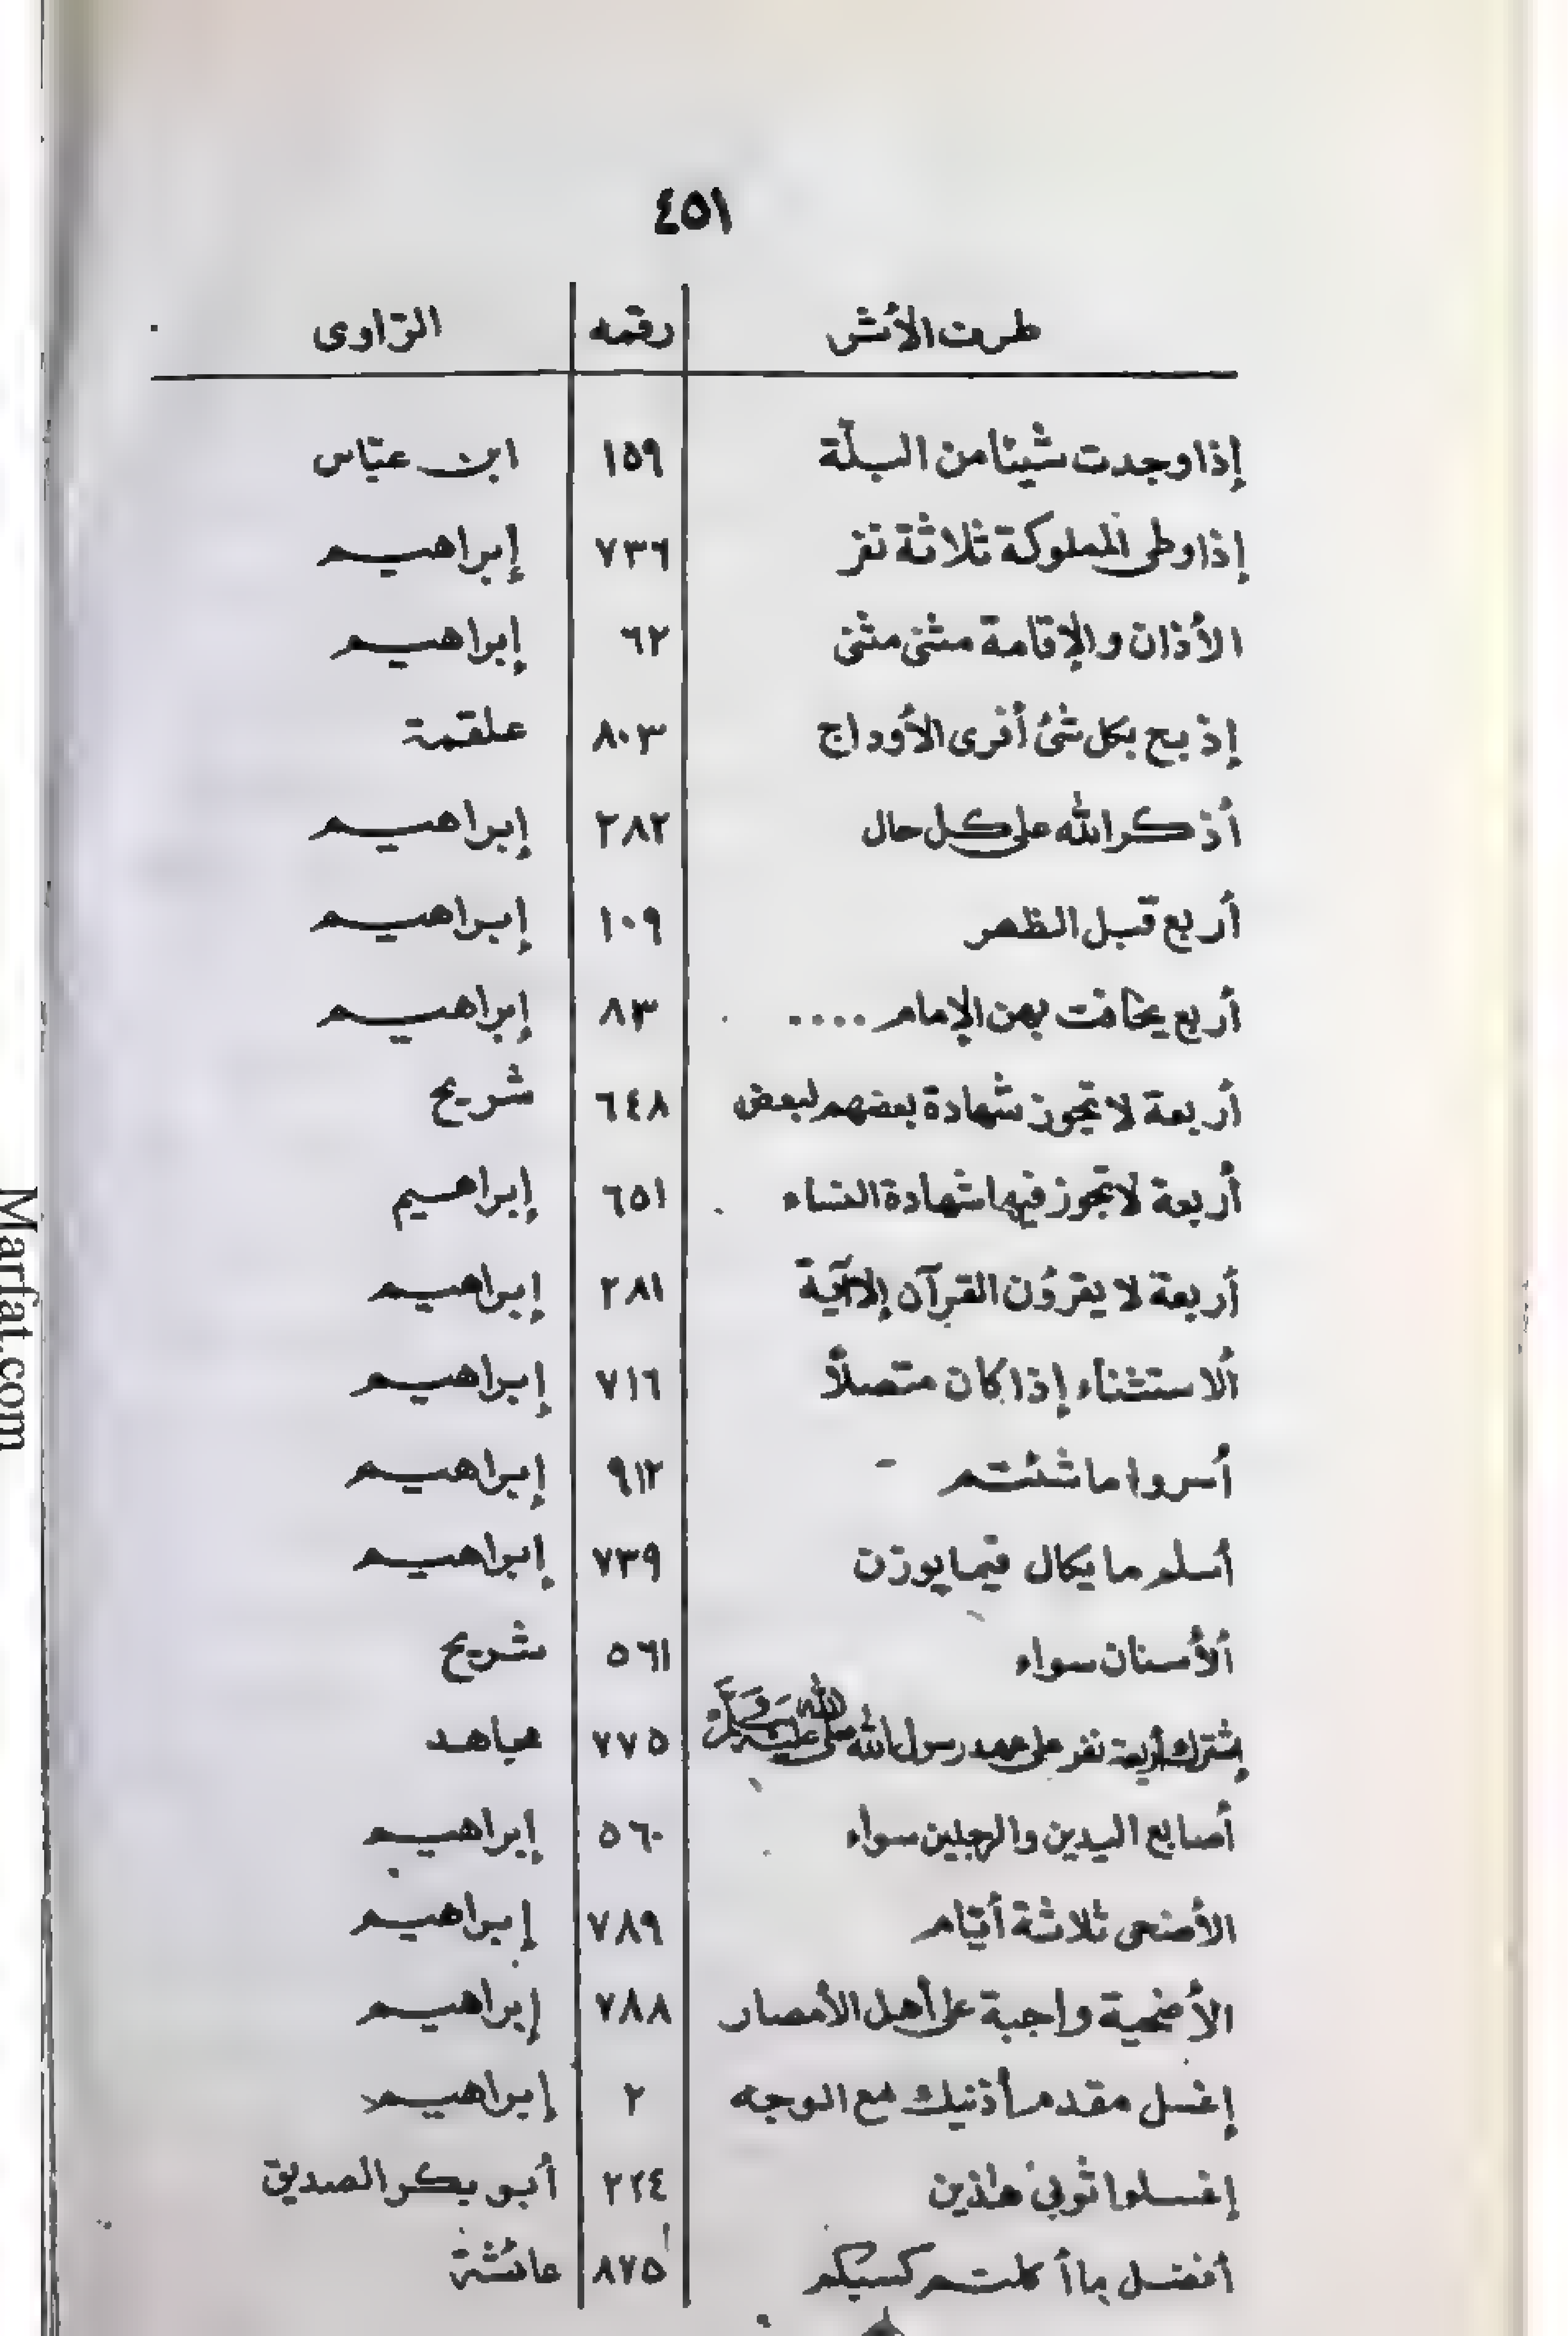 ٤٥١
طرف الأثر رقمه الرّاوى
إذا وجدت شيئا من البلّة ١٥٩ ابن عبّاس
إذا وطى المملوكة ثلاثة نفر ٧٣٦ إبراهيم
الأذان والإقامة مثنى مثنى ٦٢ إبراهيم
إذبح بكل شئ أفرى الأوداج ٨٠٣ علقمة
أذكر الله على كل حال ٢٨٢ إبراهيم
أربع قبل الظهر ١٠٩ إبراهيم
أربع يخافت بهن الإمام .... ٨٣ إبراهيم
أربعة لا تجوز شهادة بعضهم لبعض ٦٤٨ شريح
أربعة لا تجوز فيها شهادة النساء ٦٥١ إبراهيم
أربعة لا يقرؤن القرآن إلا آية ٢٨١ إبراهيم
ألاستثناء إذا كان متصلاً ٧١٦ إبراهيم
أسروا ما شئتم ٩١٢ إبراهيم
أسلم ما يكال فيما يوزن ٧٣٩ إبراهيم
ألأسنان سواء ٥٦١ شريح
إشترك أربعة نفر على عهد رسول الله صلى الله عليه وسلم ٧٧٥ مجاهد
أصابع اليدين والرجلين سواء ٥٦٠ إبراهيم
الأضحى ثلاثة أيّام ٧٨٩ إبراهيم
الأضحية واجبة على أهل الأمصار ٧٨٨ إبراهيم
إغسل مقدم أذنيك مع الوجه ٢ إبراهيم
إغسلوا ثوبيّ هذين ٢٢٤ أبو بكر الصديق
أفضل ما أكلتم كسبكم ٨٧٥ عائشة
Marfat.com